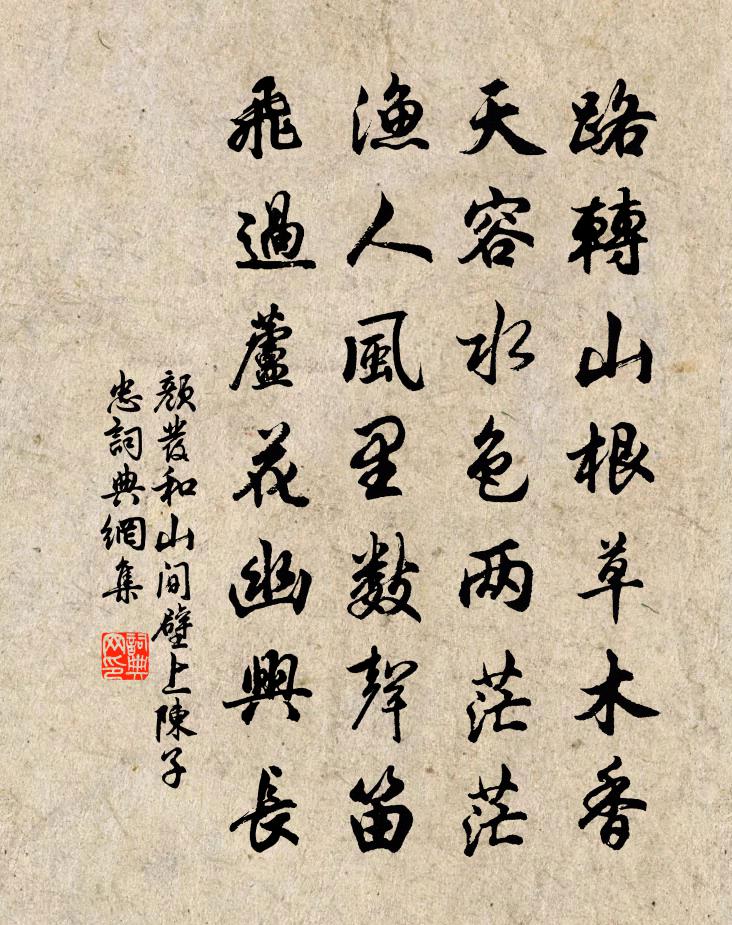 路轉山根草木香
天容水色两茫茫
漁人風里數聲笛
飛過蘆花幽興長
顏發和山間壁上陳子
忠詞典網集
詞典
网印